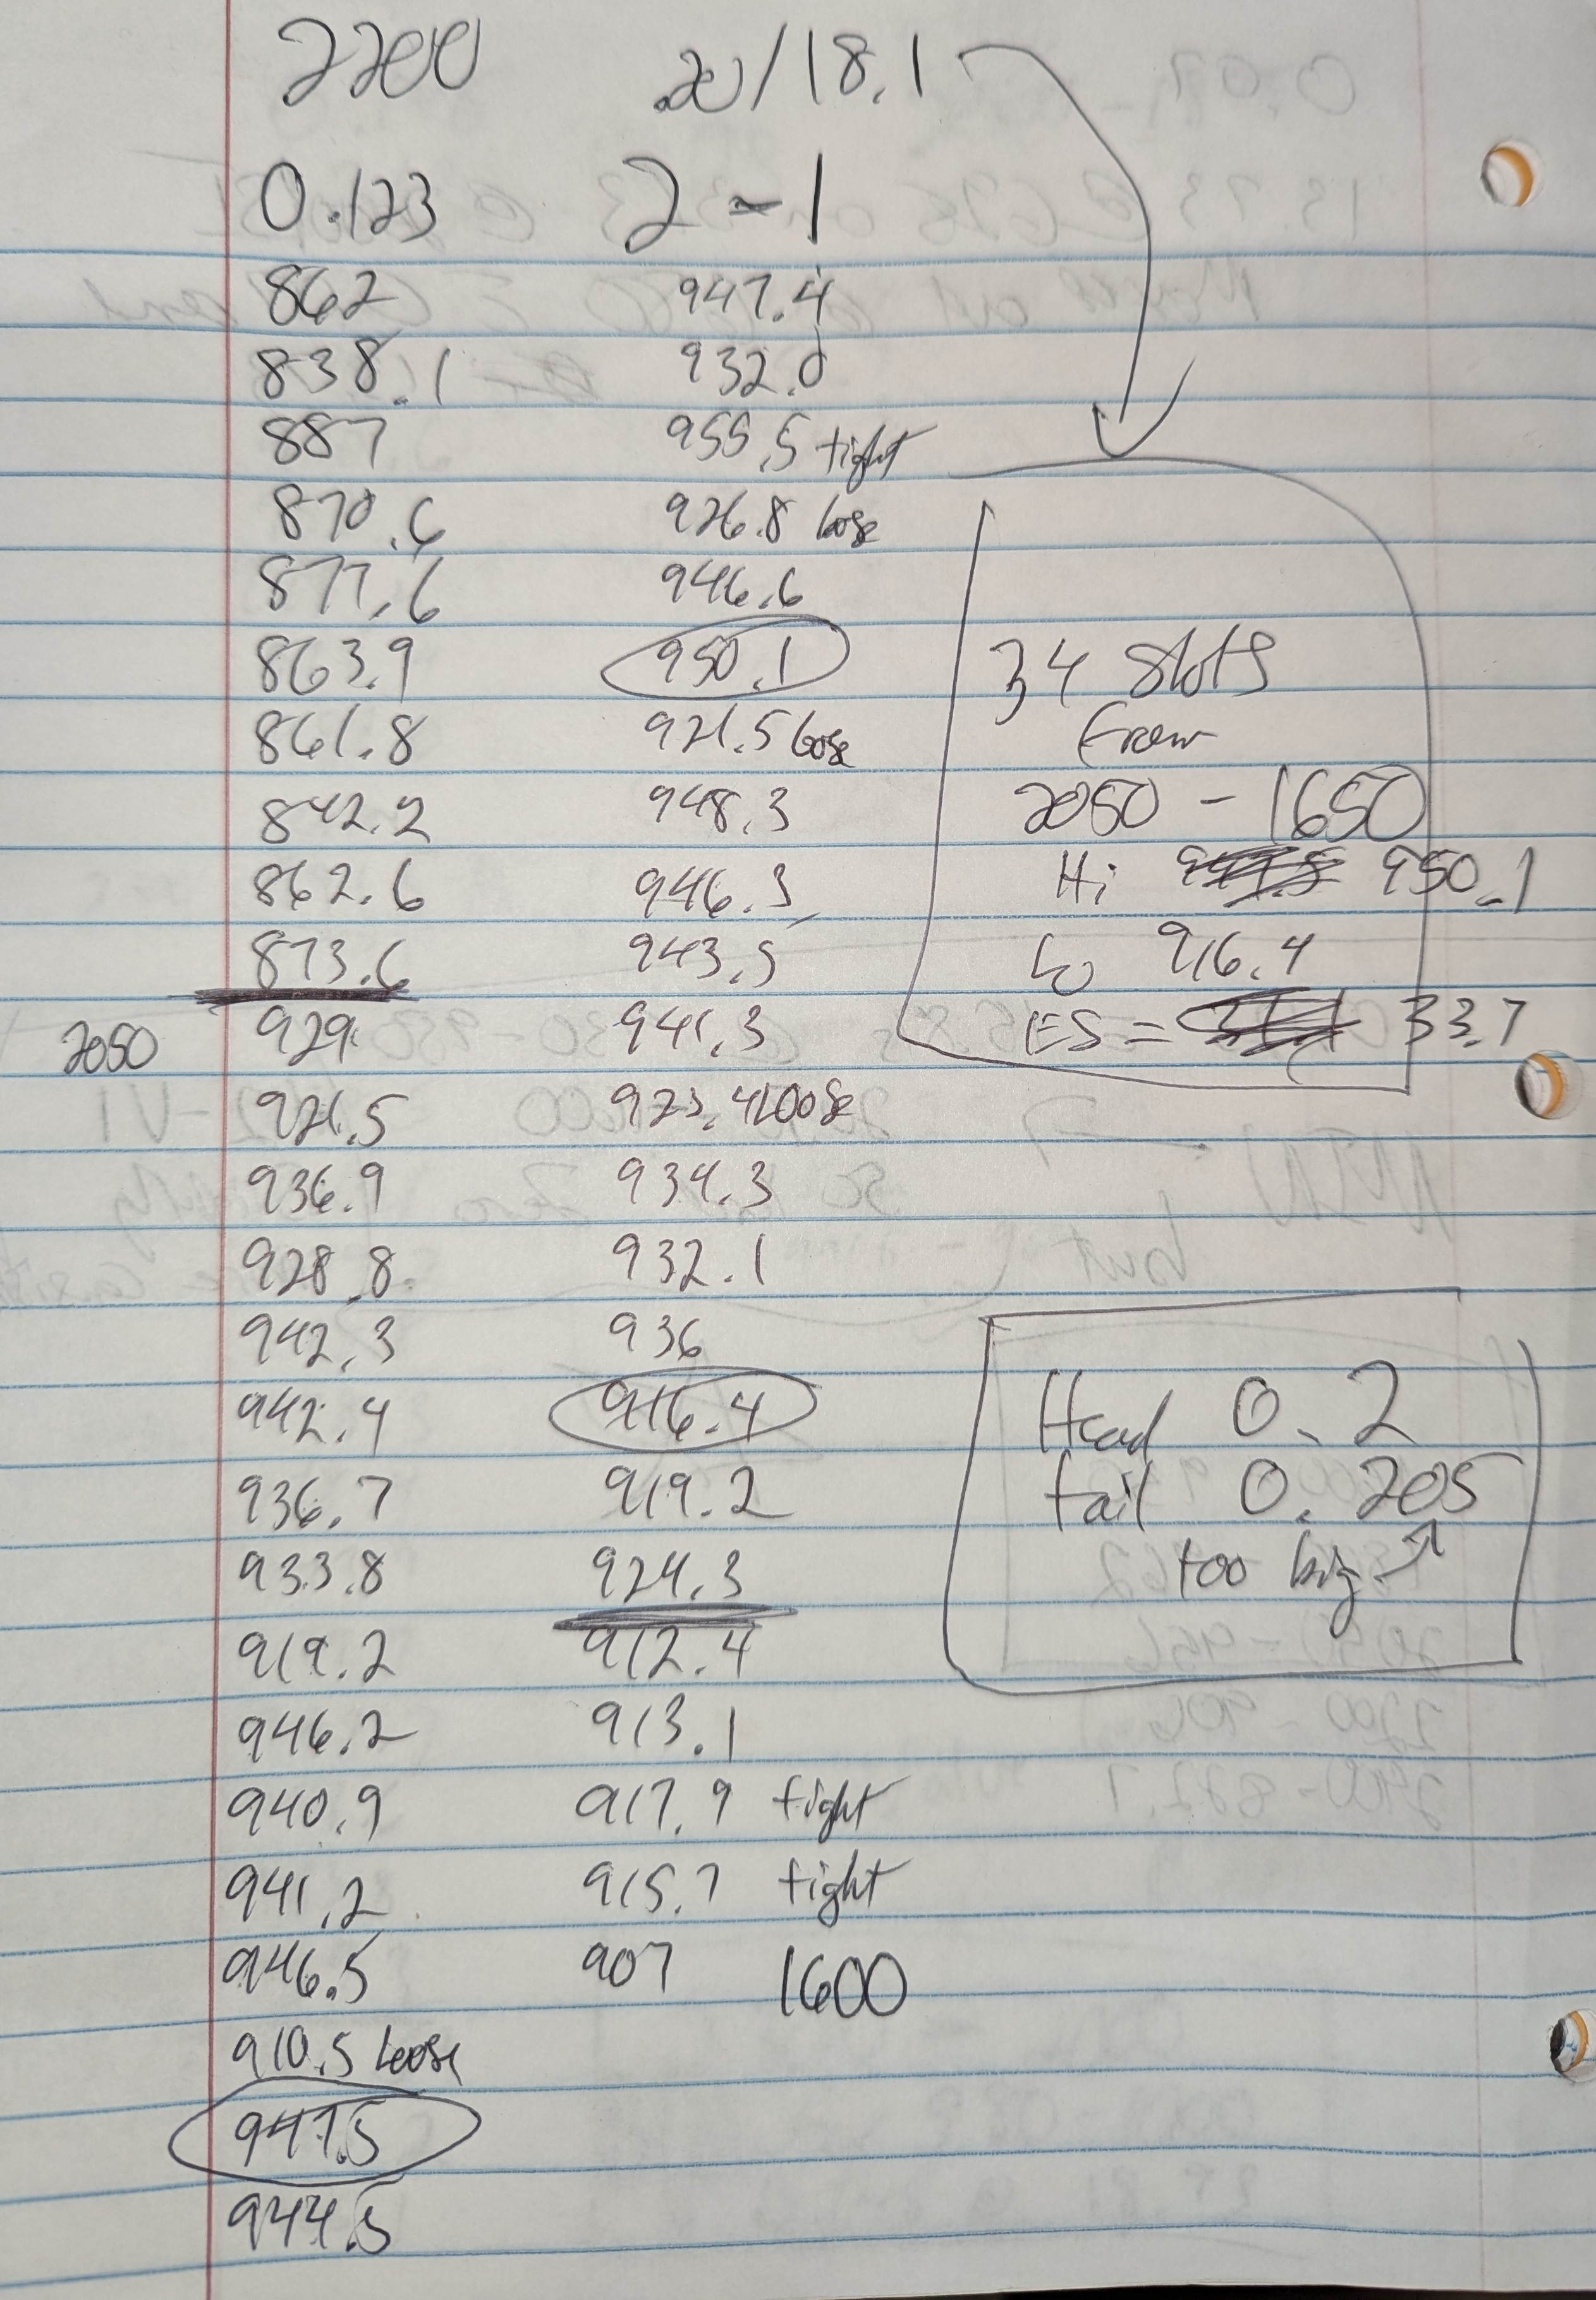 2200 .20/18.1
0.123 2-1
862 947.4
838.1 932.0
887 955.5 tight
870.6 926.8 loose
877.6 946.6
863.9 950.1
861.8 921.5 loose
842.2 948.3
862.6 946.3
873.6 943.5
2050 929 941.3
921.5 923.4 loose
936.9 934.3
928.8 932.1
942.3 936
942.4 916.4
936.7 919.2
933.8 924.3
919.2 912.4
946.2 913.1
940.9 917.9 tight
941.2 915.7 tight
946.5 907 1600
910.5 loose
947.5
944.5
34 slots
from
2050 - 1650
Hi 950.1
Lo 916.4
ES = 33.7
Head 0.2
tail 0.205
too big